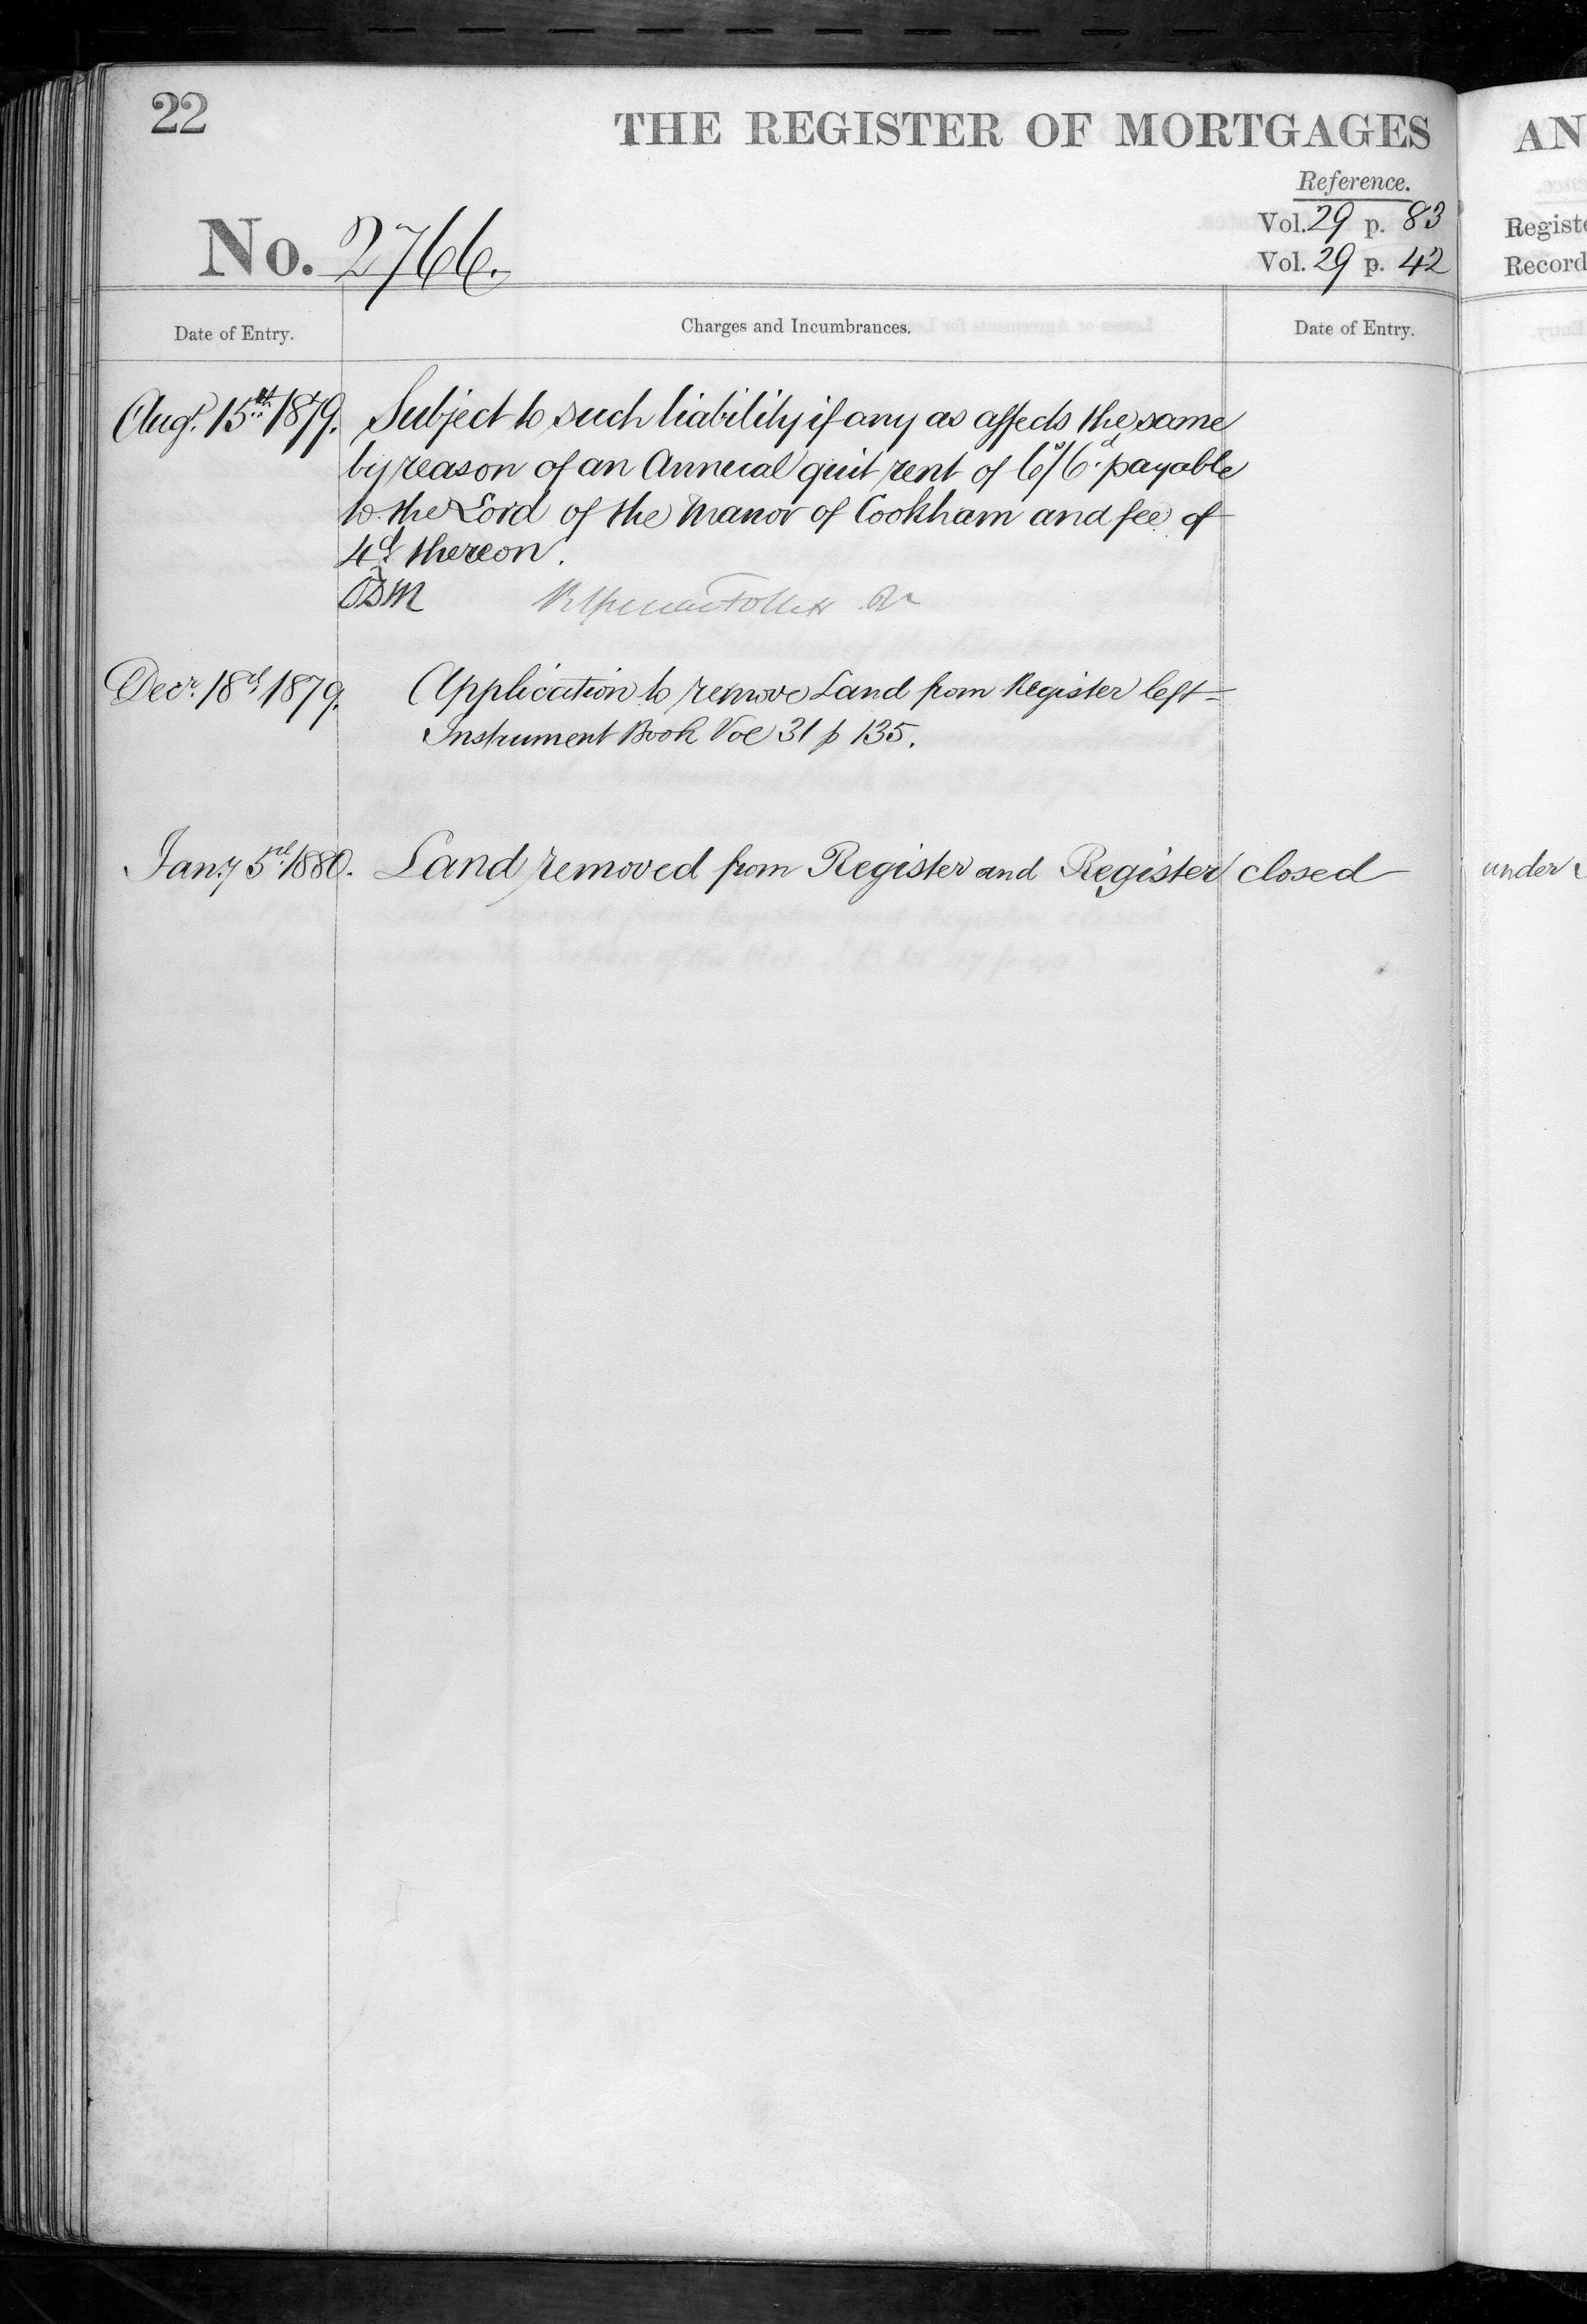 22
THE REGISTER OF MORTGAGES
Reference.
Vol. 29 p. 83
No. 2766.
Vol. 29 p. 42
Date of Entry. Charges and Incumbrances. Date of Entry.
Augt. 15th 1879. Subject to such liability if any as affects the same
by reason of an Annual quit rent of 6s/6d. payable
to the Lord of the Manor of Cookham and fee of
4d thereon.
Decr. 18th 1879. Application to remove Land from Register left
Instrument Book Vol 31 p 135.
Jany 5th 1880. Land removed from Register and Register closed
AN
Registe
Record
under